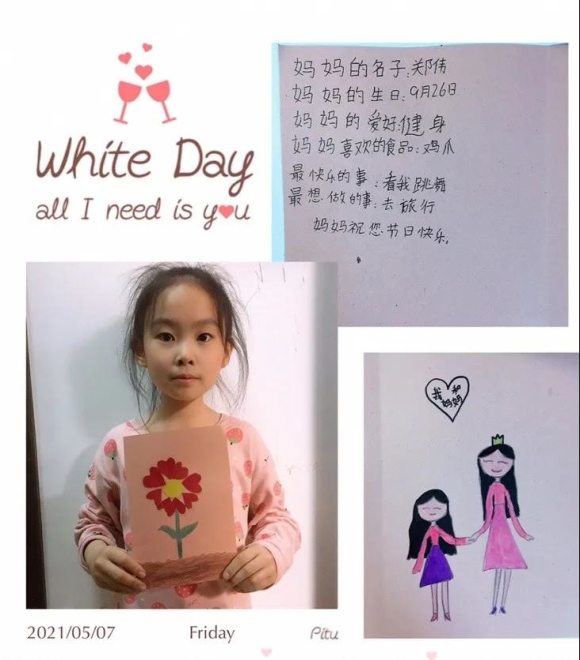 White Day
all I need is you
妈妈的名子:郑伟
妈妈的生日:9月26日
妈妈的爱好:健身
妈妈喜欢的食品:鸡爪
最快乐的事:看我跳舞
最想做的事:去旅行
妈妈祝您节日快乐.
我和
妈妈
2021/05/07 Friday Pitu